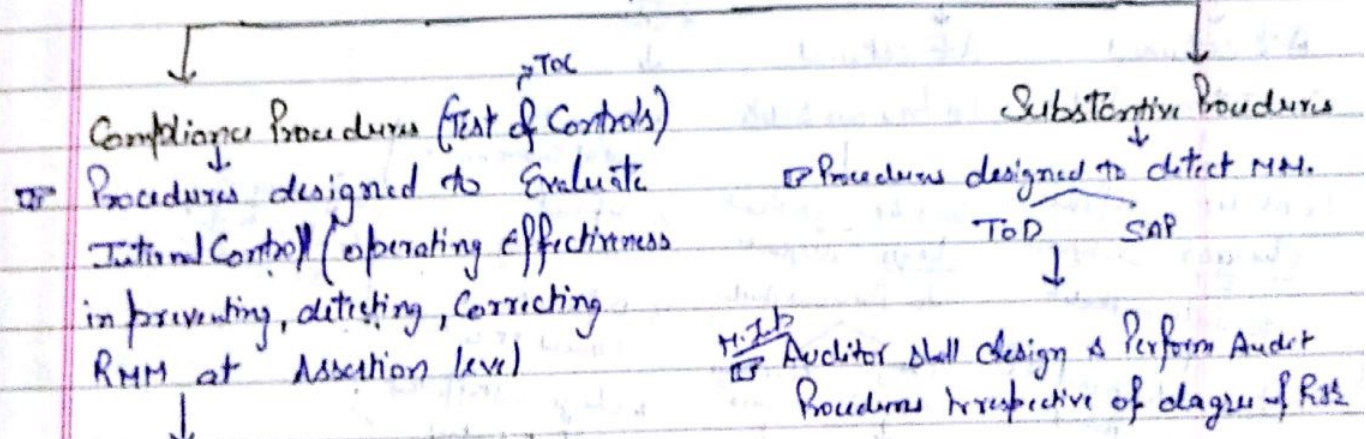 → TOC
Compliance Procedures (Test of Controls)
Procedures designed to Evaluate
Internal Control (operating Effectiveness
in preventing, detecting, Correcting
RMM at Assertion level
Substantive Procedures
Procedures designed to detect MM.
TOD SAP
M.Imp
Auditor shall design & Perform Audit
Procedures Irrespective of degree of Risk